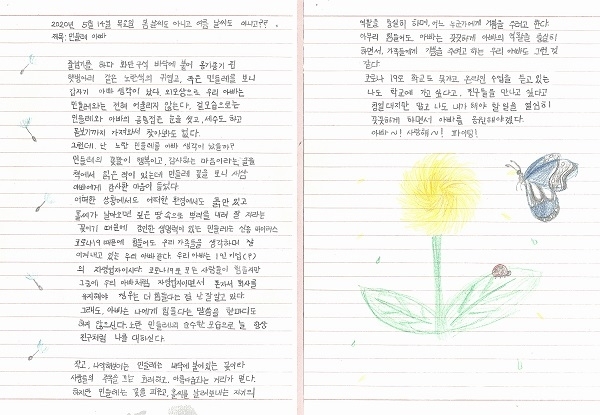 2020년 5월 14일 목요일 봄 날씨도 아니고 여름 날씨도 아니고??
제목: 민들레 아빠
줄넘기를 하다 화단 구석 바닥에 붙어 옹기종기 핀
햇병아리 같은 노란색의 귀엽고, 작은 민들레를 보니
갑자기 아빠 생각이 났다. 외모상으로 우리 아빠는
민들레와는 전혀 어울리지 않는다. 겉모습으로는
민들레와 아빠의 공통점은 눈을 씻고, 세수도 하고
돋보기까지 가져와서 찾아봐도 없다.
그런데 난 노란 민들레를 아빠 생각이 났을까?
민들레의 꽃말이 행복이고, 감사하는 마음이라는 글을
책에서 읽은 적이 있는데 민들레 꽃을 보니 새삼
아빠에게 감사한 마음이 들었다.
어떠한 상황에서도 어떠한 환경에서도 굴하지 않고
홀씨가 날아오면 깊은 땅 속으로 뿌리를 내려 잘 자라는
꽃이기 때문에 강인한 생명력이 있는 민들레는 신종 바이러스
코로나19 때문에 힘들어도 우리 가족들을 생각하며 잘
이겨내고 있는 우리 아빠같다. 우리 아빠는 1인 기업(?)
의 자영업자이시다. 코로나19로 모든 사람들이 힘들지만
그중에 우리 아빠처럼 자영업자이면서 혼자서 회사를
유지해야 경우는 더 힘들다는 걸 난 잘 알고 있다.
그래도 아빠는 나에게 힘들다는 말씀을 한마디도
하지 않으신다. 노란 민들레의 순수한 모습으로 늘 항상
친구처럼 나를 대하신다.
작고, 나약해보이는 민들레는 바닥에 붙어있는 꽃이라
사람들의 주목을 끄는 화려하고, 아름다움과는 거리가 멀다.
하지만 민들레는 꽃을 피우고, 홀씨를 날려보내는 자기의
역할을 충실히 하며, 어느 누군가에게 기쁨을 주려고 한다.
아무리 힘들어도 아빠는 꿋꿋하게 아빠의 역할을 충실히
하면서, 가족들에게 기쁨을 주려고 하는 우리 아빠도 그런 것
같다.
코로나 19로 학교도 못가고 온라인 수업을 듣고 있는
나도 학교에 가고 싶다고, 친구들을 만나고 싶다고
칭얼대지만 말고 나도 내가 해야 할 일을 열심히
꿋꿋하게 하면서 아빠를 응원해야겠다.
아빠~! 사랑해~! 파이팅!